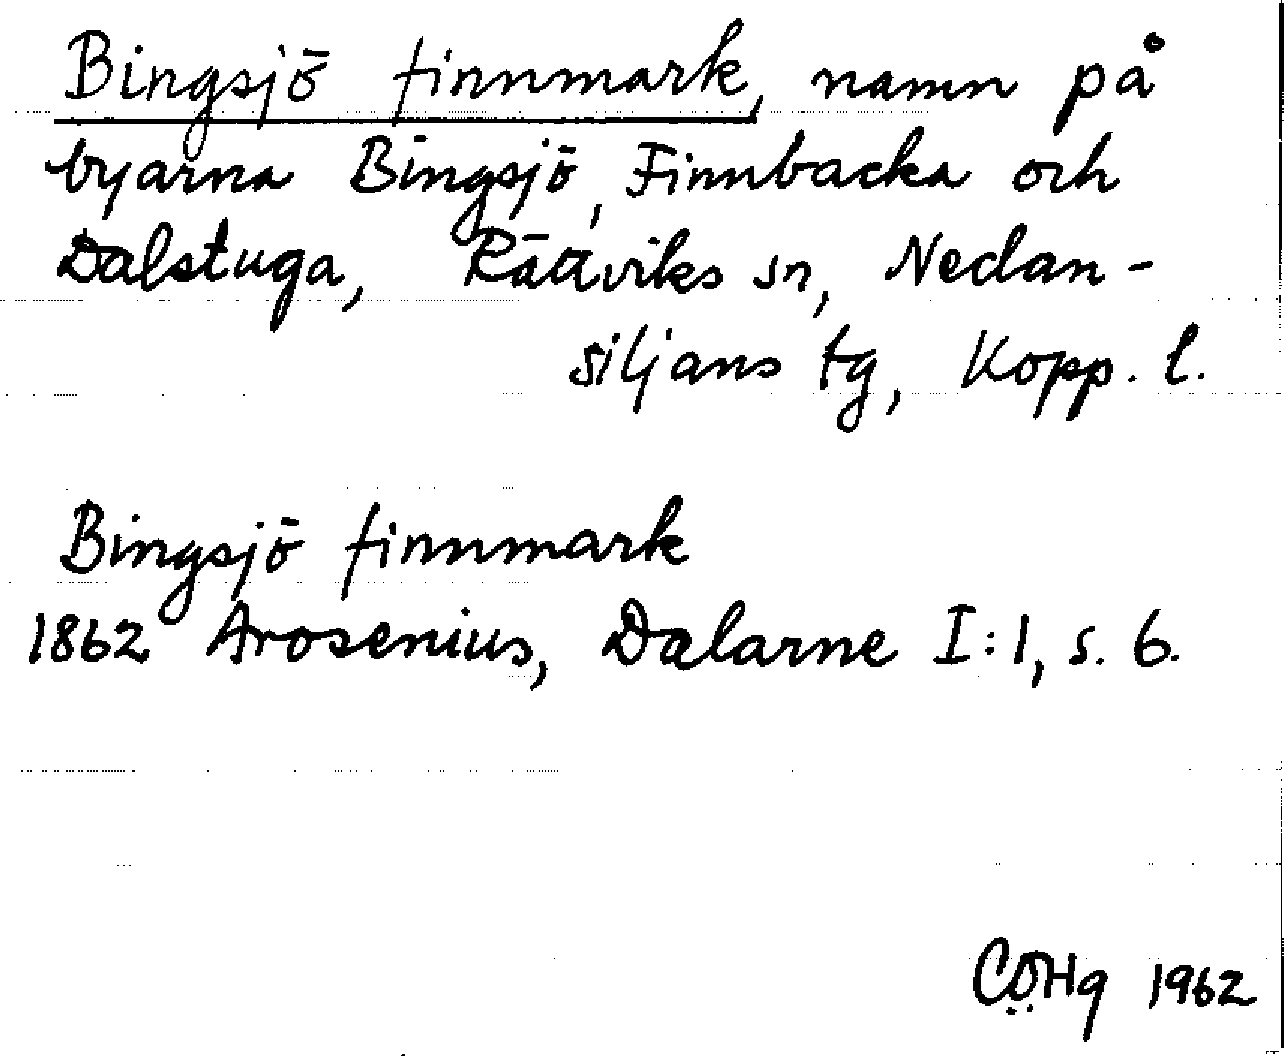 Bingsjö finnmark, namn på
byarna Bingsjö, Finnbacka och
Dalstuga, Rättviks sn, Nedan-
siljans tg, Kopp. l.
Bingsjö finnmark
1862 Arosenius, Dalarne I:1, s. 6.
CÖHg 1962